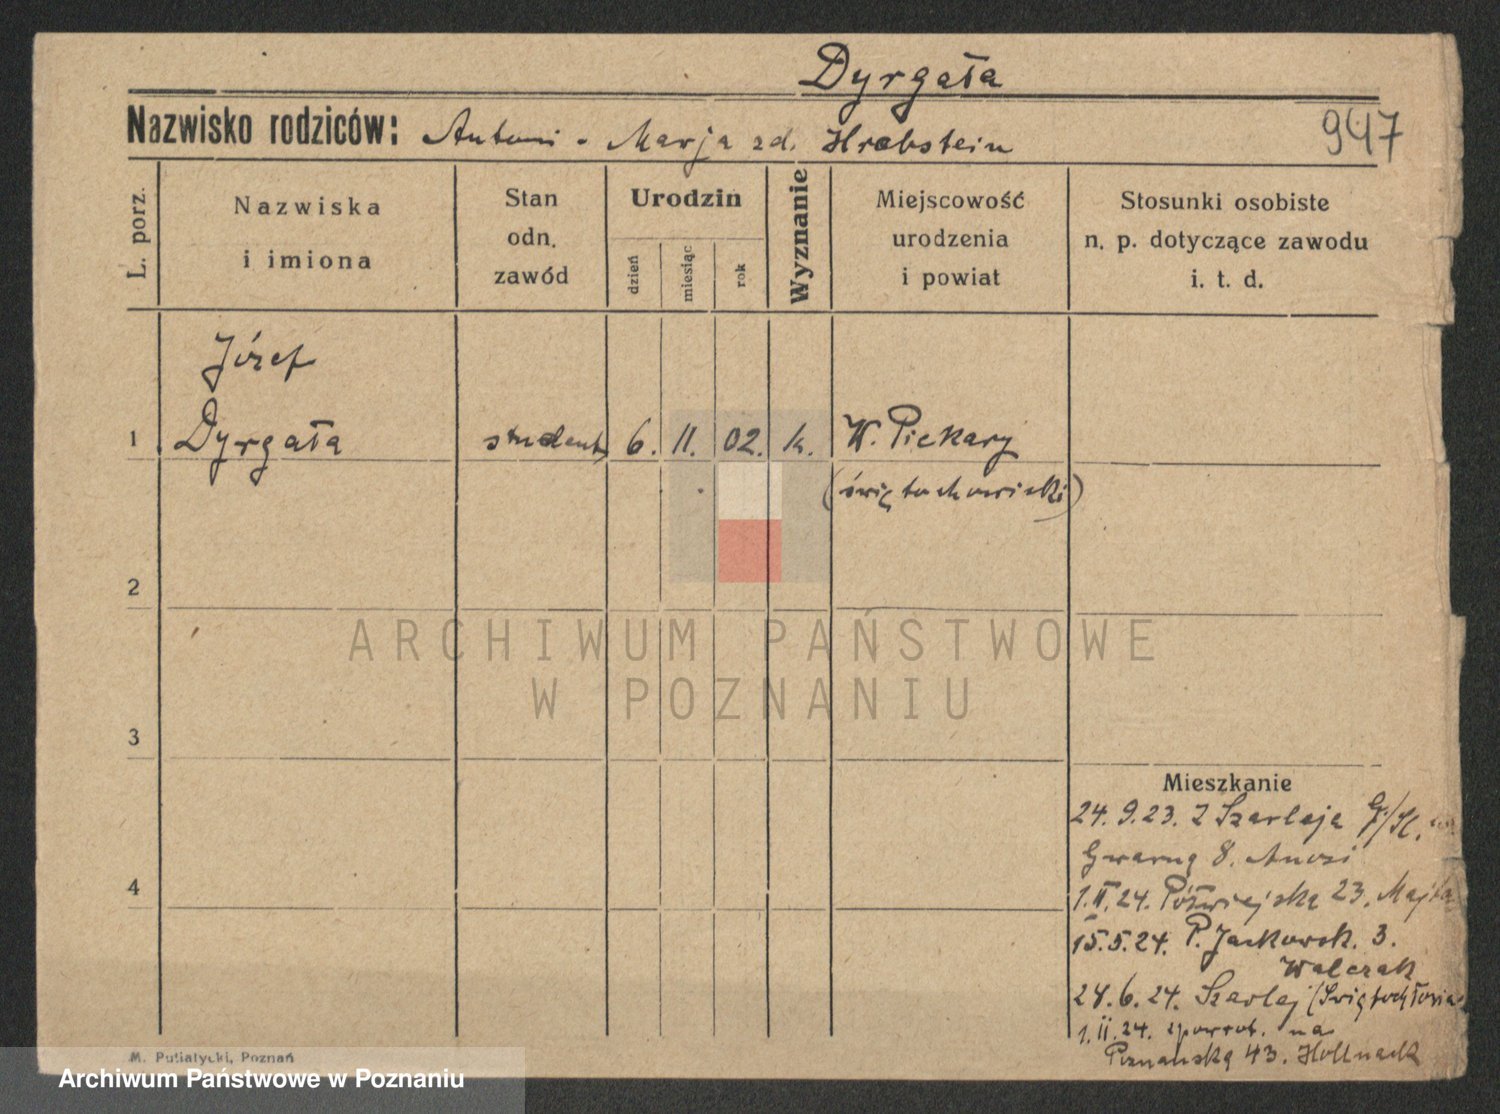 Dyrgała
Nazwisko rodziców: Antoni - Marja zd. Hrabstein
947
L. porz.
Nazwiska
i imiona
Stan
odn.
zawód
Urodzin
dzień
miesiąc
rok
Wyznanie
Miejscowość
urodzenia
i powiat
Stosunki osobiste
n. p. dotyczące zawodu
i. t. d.
Józef
1 Dyrgała student 6. 11. 02. k. W. Piekary
(świętochowicki)
2
ARCHIWUM PAŃSTWOWE
W POZNANIU
3
Mieszkanie
24. 9. 23. Z Szarleja G/Śl.
Gwarną 8.
4
1. II. 24. Półwiejską 23.
15. 5. 24. P. Jackowsk. 3.
Walczak
28. 6. 24. Szarlej
1. II. 24. zpowrot. na
Poznańską 43.
M. Putiatycki, Poznań
Archiwum Państwowe w Poznaniu